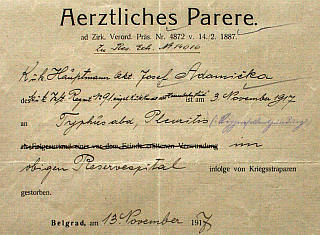 Aerztliches Parere.
ad Zirk. Verord. Präs. Nr. 4872 v. 14./2. 1887.
Zu Res. Sch. № 14016
K.u.k. Hauptmann Josef Adamička
des ist am 3. November 1917
an Typhus abd., Pleuritis
im
obigen Reservespital infolge von Kriegsstrapazen
gestorben.
Belgrad, am 13. November 1917